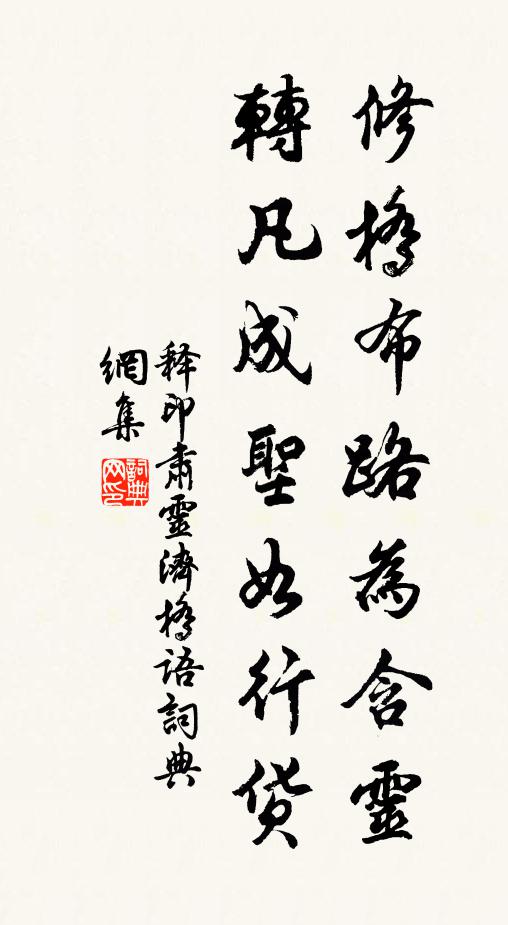 修橋布路為含靈
轉凡成聖如行貸
释印肅靈濟橋語詞典
網集
詞典網印